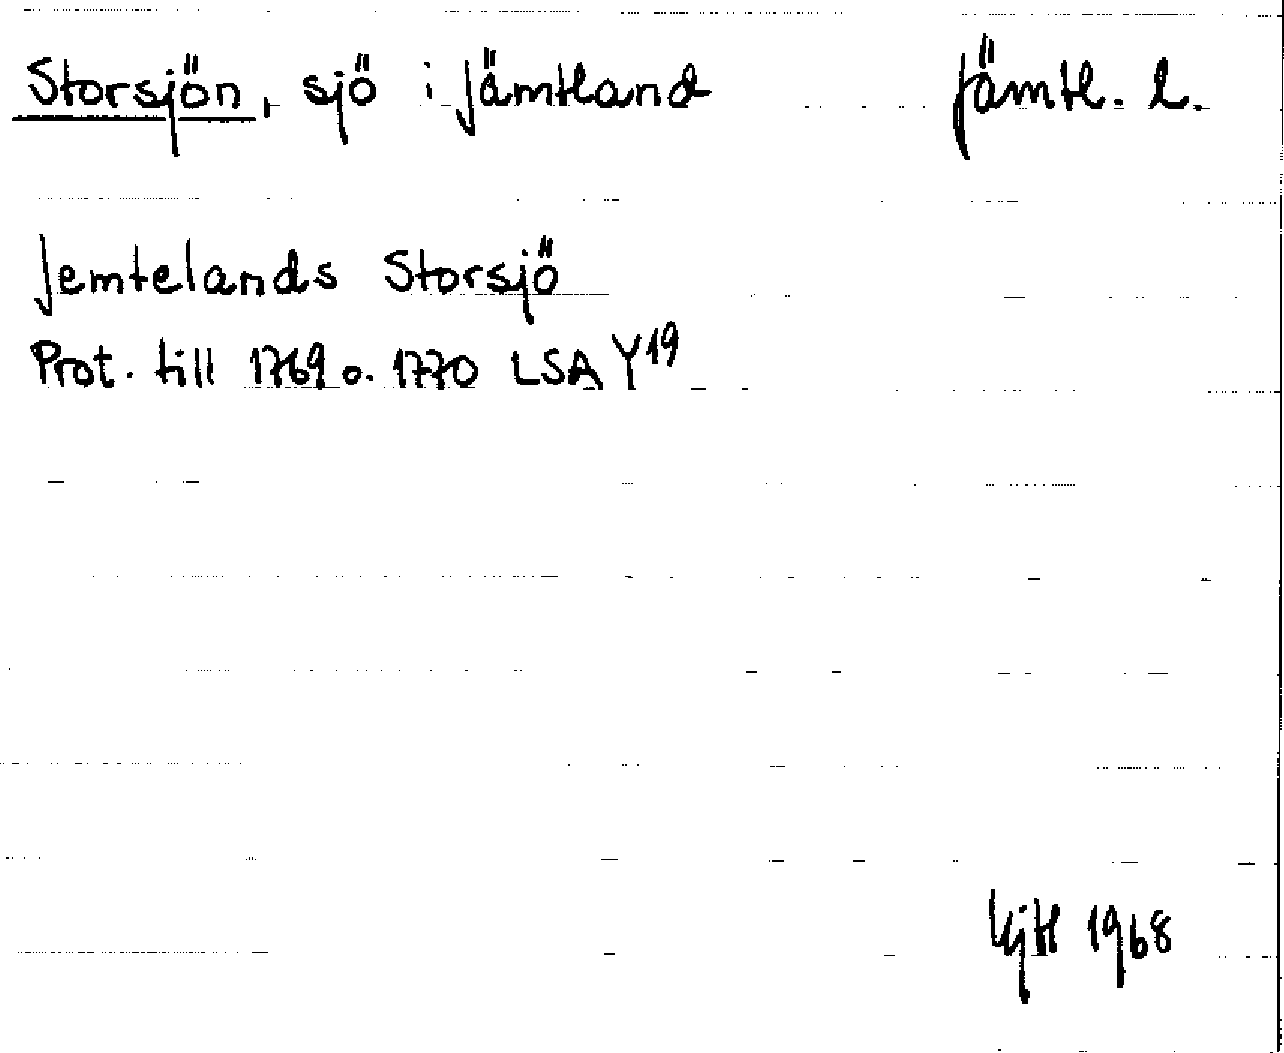 Storsjön, sjö i Jämtland Jämtl. l.
Jemtelands Storsjö
Prot. till 1769 o. 1770 LSA Y19
1968